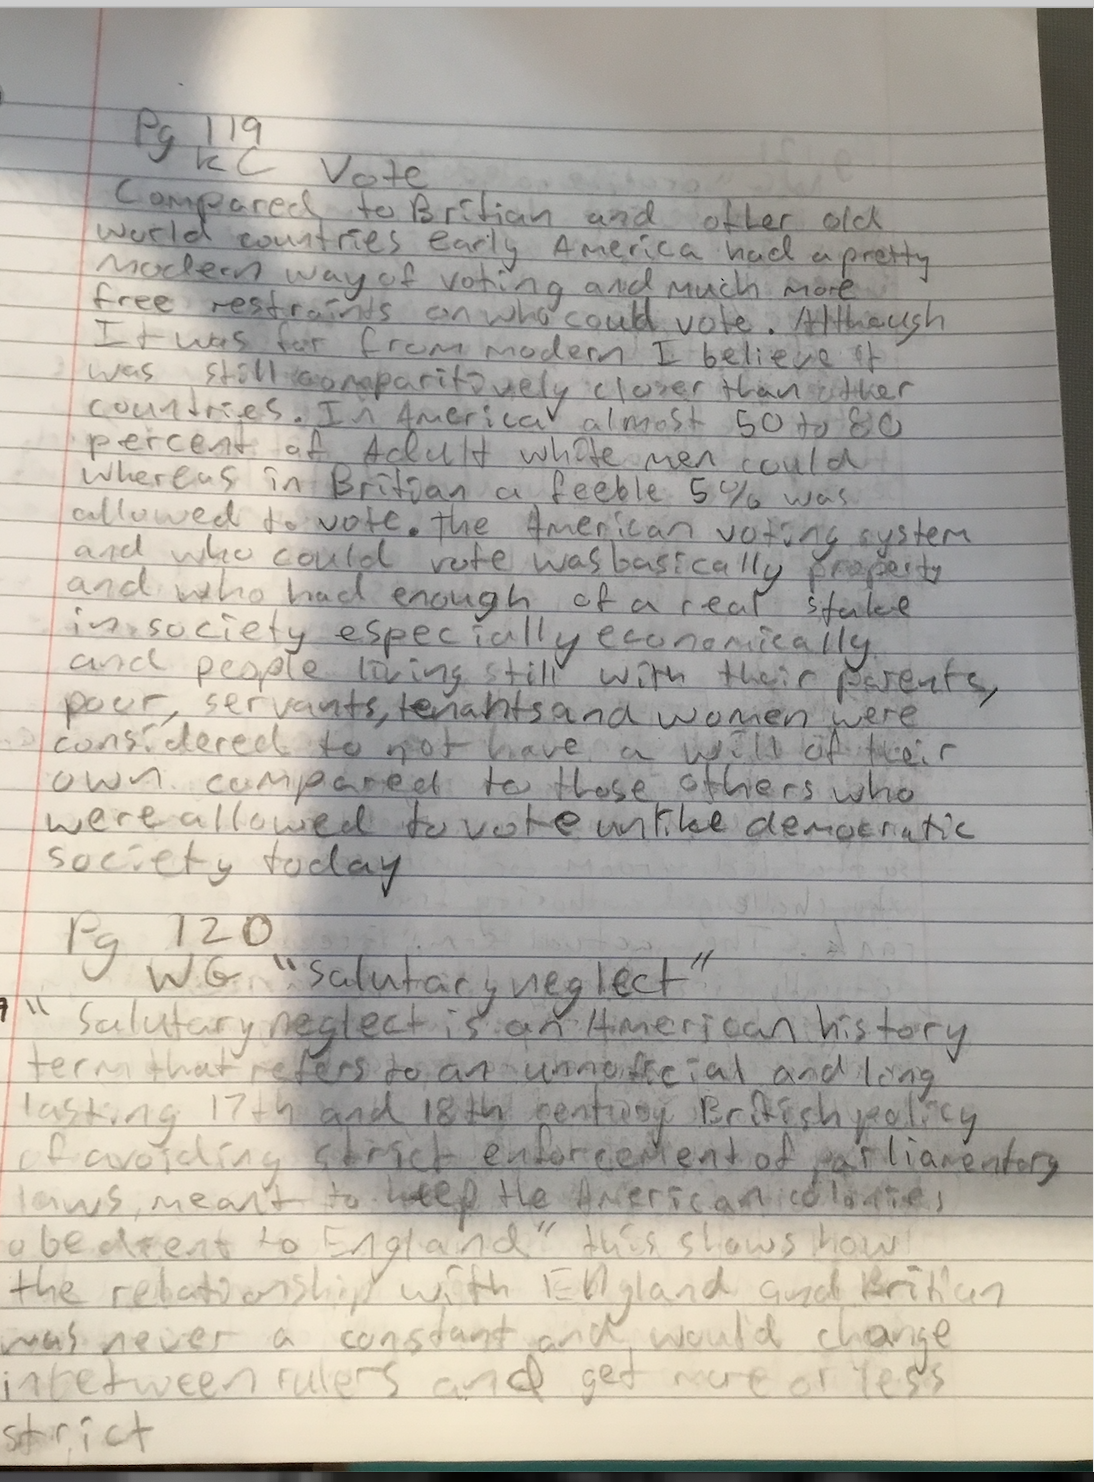 Pg 119
KC Vote
Compared to Britian and other old
world countries early America had a pretty
modern way of voting and much more
free restraints on who could vote. Although
It was far from modern I believe it
was still comparitively closer than other
countries. In America almost 50 to 80
percent of Adult white men could
whereas in Britian a feeble 5% was
allowed to vote. the American voting system
and who could vote was basically property
and who had enough of a real stake
in society especially economically
and people living still with their parents,
poor, servants, tenants and women were
considered to not have a will of their
own compared to those others who
were allowed to vote unlike democratic
society today
Pg 120
WG "Salutary neglect"
"Salutary neglect is an American history
term that refers to an unnofficial and long
lasting 17th and 18th century British policy
of avoiding strict enforcement of parliamentary
laws, meant to keep the American colonies
obedient to England" this shows how
the relationship with England and Britian
was never a constant and would change
inbetween rulers and get more or less
strict